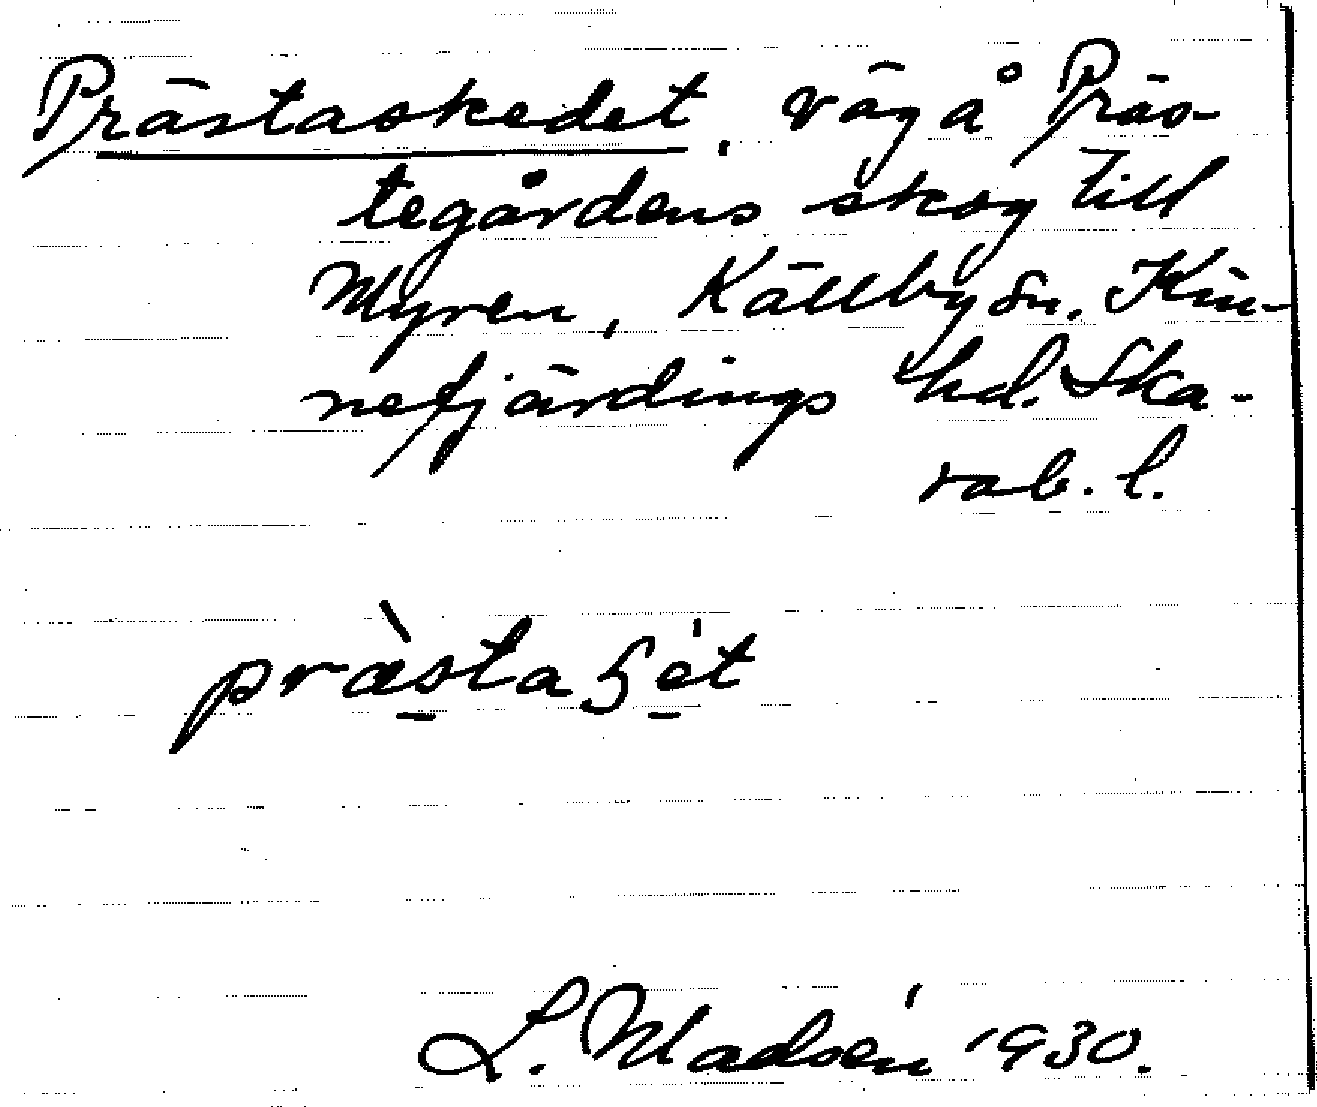 Prästaskedet, väg å Präs-
tegårdens skog till
Myren, Källby sn. Kin-
nefjärdings hd. Ska-
rab. l.
L. Madsén 1930.